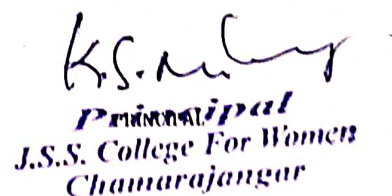 K.S.
Principal
PRINCIPAL
J.S.S. College For Women
Chamarajangar